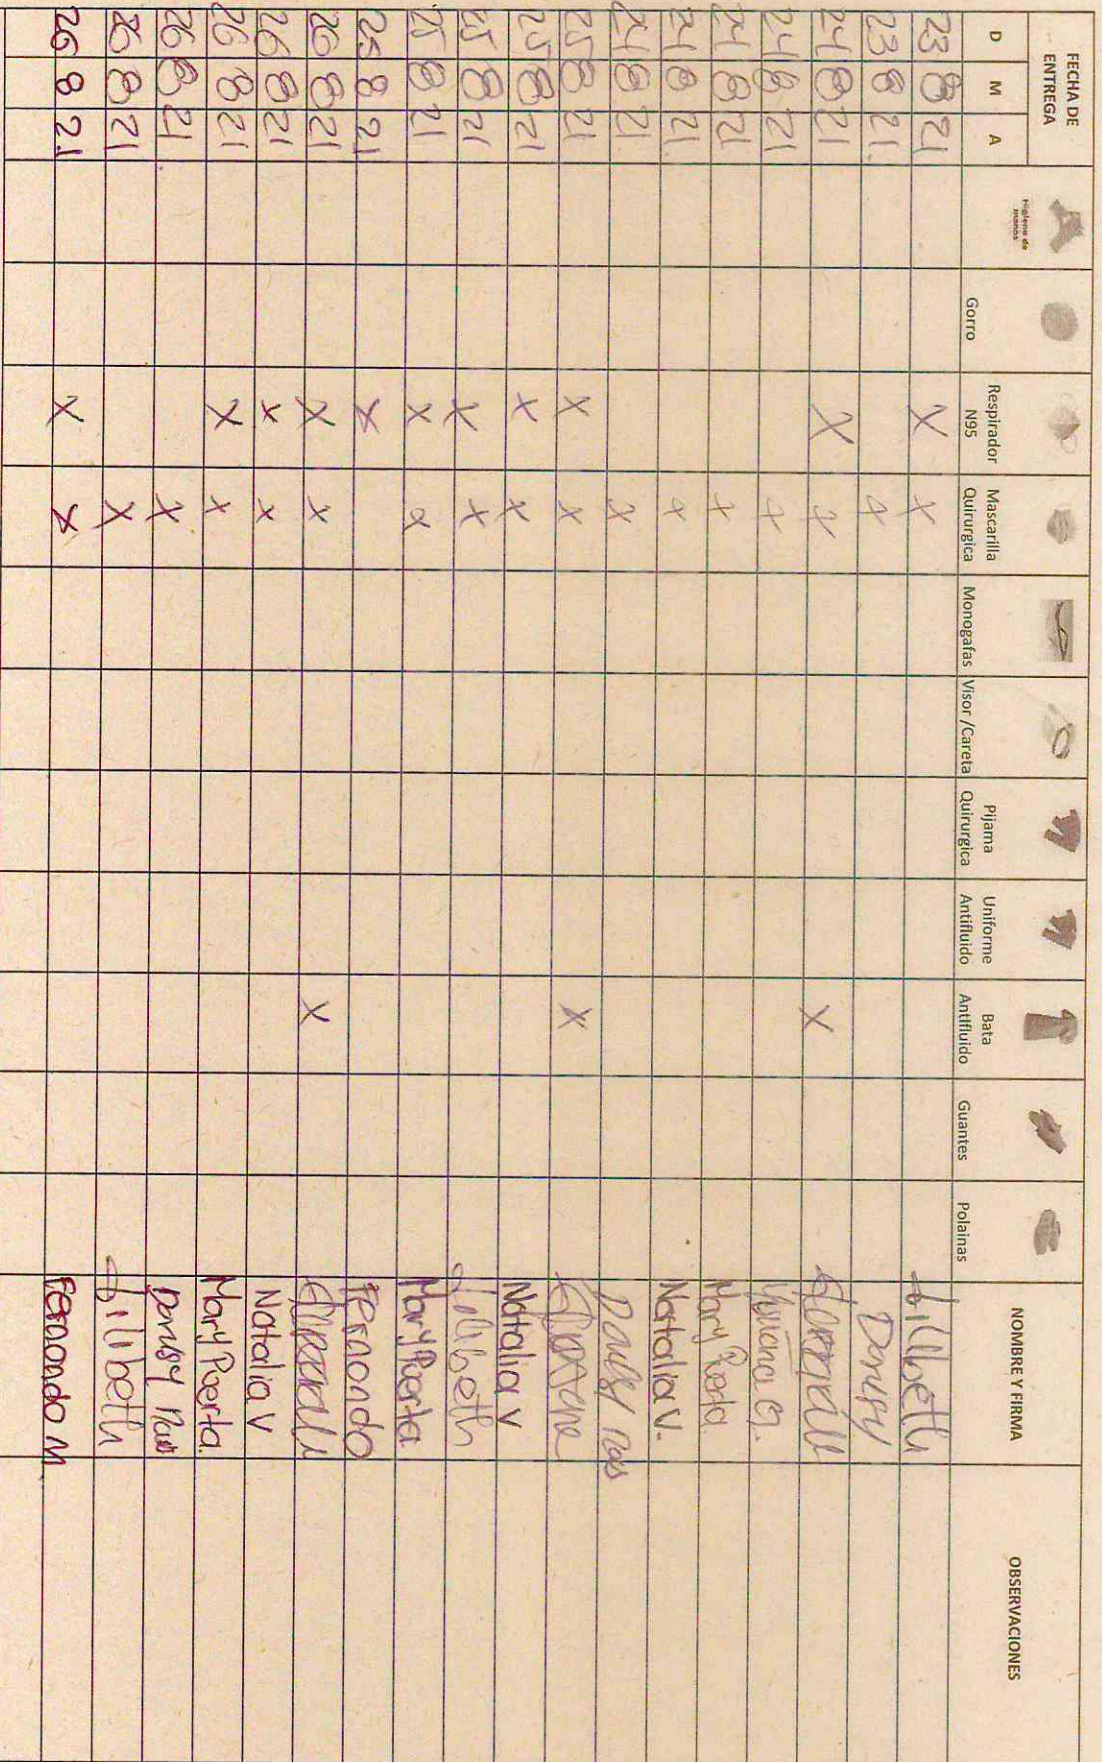 FECHA DE ENTREGA Higiene de manos Gorro Respirador N95 Mascarilla Quirurgica Monogafas Visor /Careta Pijama Quirurgica Uniforme Antifluido Bata Antifluido Guantes Polainas NOMBRE Y FIRMA OBSERVACIONES
D M A
23 8 21 X X Lillibeth
23 8 21 X Danusy
24 8 21 X X X
24 8 21 X
24 8 21 X Mary Puerta
24 8 21 X Natalia V.
24 8 21 X
25 8 21 X X X
25 8 21 X X Natalia V
25 8 21 X X Lilibeth
25 8 21 X X Mary Puerta
25 8 21 X Fernando
26 8 21 X X X
26 8 21 X X Natalia V
26 8 21 X X Mary Puerta.
26 8 21 X
26 8 21 X Lilibeth
26 8 21 X X Fernando M